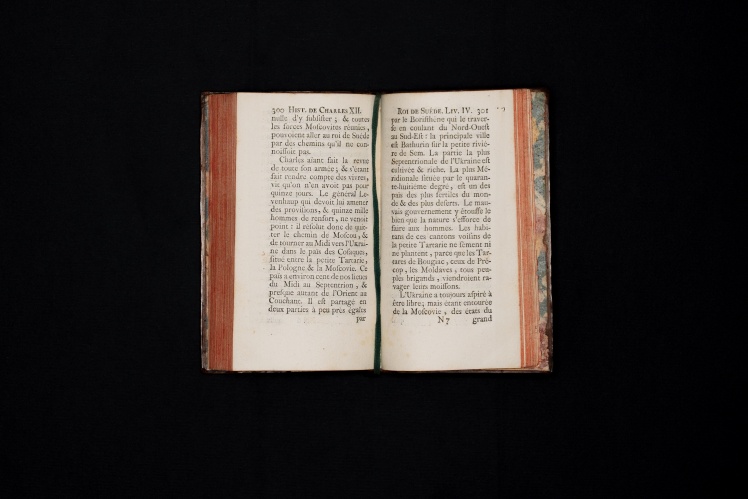 300 HIST. DE CHARLES XII.
nulle d'y ſubſiſter ; & toutes
les forces Moſcovites réunies,
pouvoient aller au roi de Suède
par des chemins qu'il ne con-
noiſſoit pas.
Charles aïant fait la revue
de toute ſon armée ; & s'étant
fait rendre compte des vivres,
vit qu'on n'en avoit pas pour
quinze jours. Le général Le-
venhaup qui devoit lui amener
des proviſions, & quinze mille
hommes de renfort, ne venoit
point : il réſolut donc de quit-
ter le chemin de Moſcou, &
de tourner au Midi vers l'Ukrai-
ne dans le païs des Coſaques,
ſitué entre la petite Tartarie,
la Pologne & la Moſcovie. Ce
païs a environ cent de nos lieües
du Midi au Septentrion, &
preſque autant de l'Orient au
Couchant. Il eſt partagé en
deux parties à peu près égales
par
ROI DE SUÈDE. LIV. IV. 301
par le Boriſthène qui le traver-
ſe en coulant du Nord-Oueſt
au Sud-Eſt : la principale ville
eſt Bathurin ſur la petite riviè-
re de Sem. La partie la plus
Septentrionale de l'Ukraine eſt
cultivée & riche. La plus Mé-
ridionale ſituée par le quaran-
te-huitième degré, eſt un des
païs des plus fertiles du mon-
de & des plus deſerts. Le mau-
vais gouvernement y étouffe le
bien que la nature s'efforce de
faire aux hommes. Les habi-
tans de ces cantons voiſins de
la petite Tartarie ne ſèment ni
ne plantent, parce que les Tar-
tares de Bougiac, ceux de Pré-
cop, les Moldaves, tous peu-
ples brigands, viendroient ra-
vager leurs moiſſons.
L'Ukraine a toujours aſpiré à
être libre; mais étant entourée
de la Moſcovie, des états du
N 7 grand